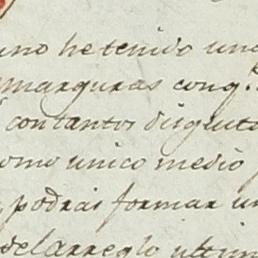 uno he tenido una
marguras con q.
con tantos disgusto
omo unico medio
podrai formar u
del arreglo ultim